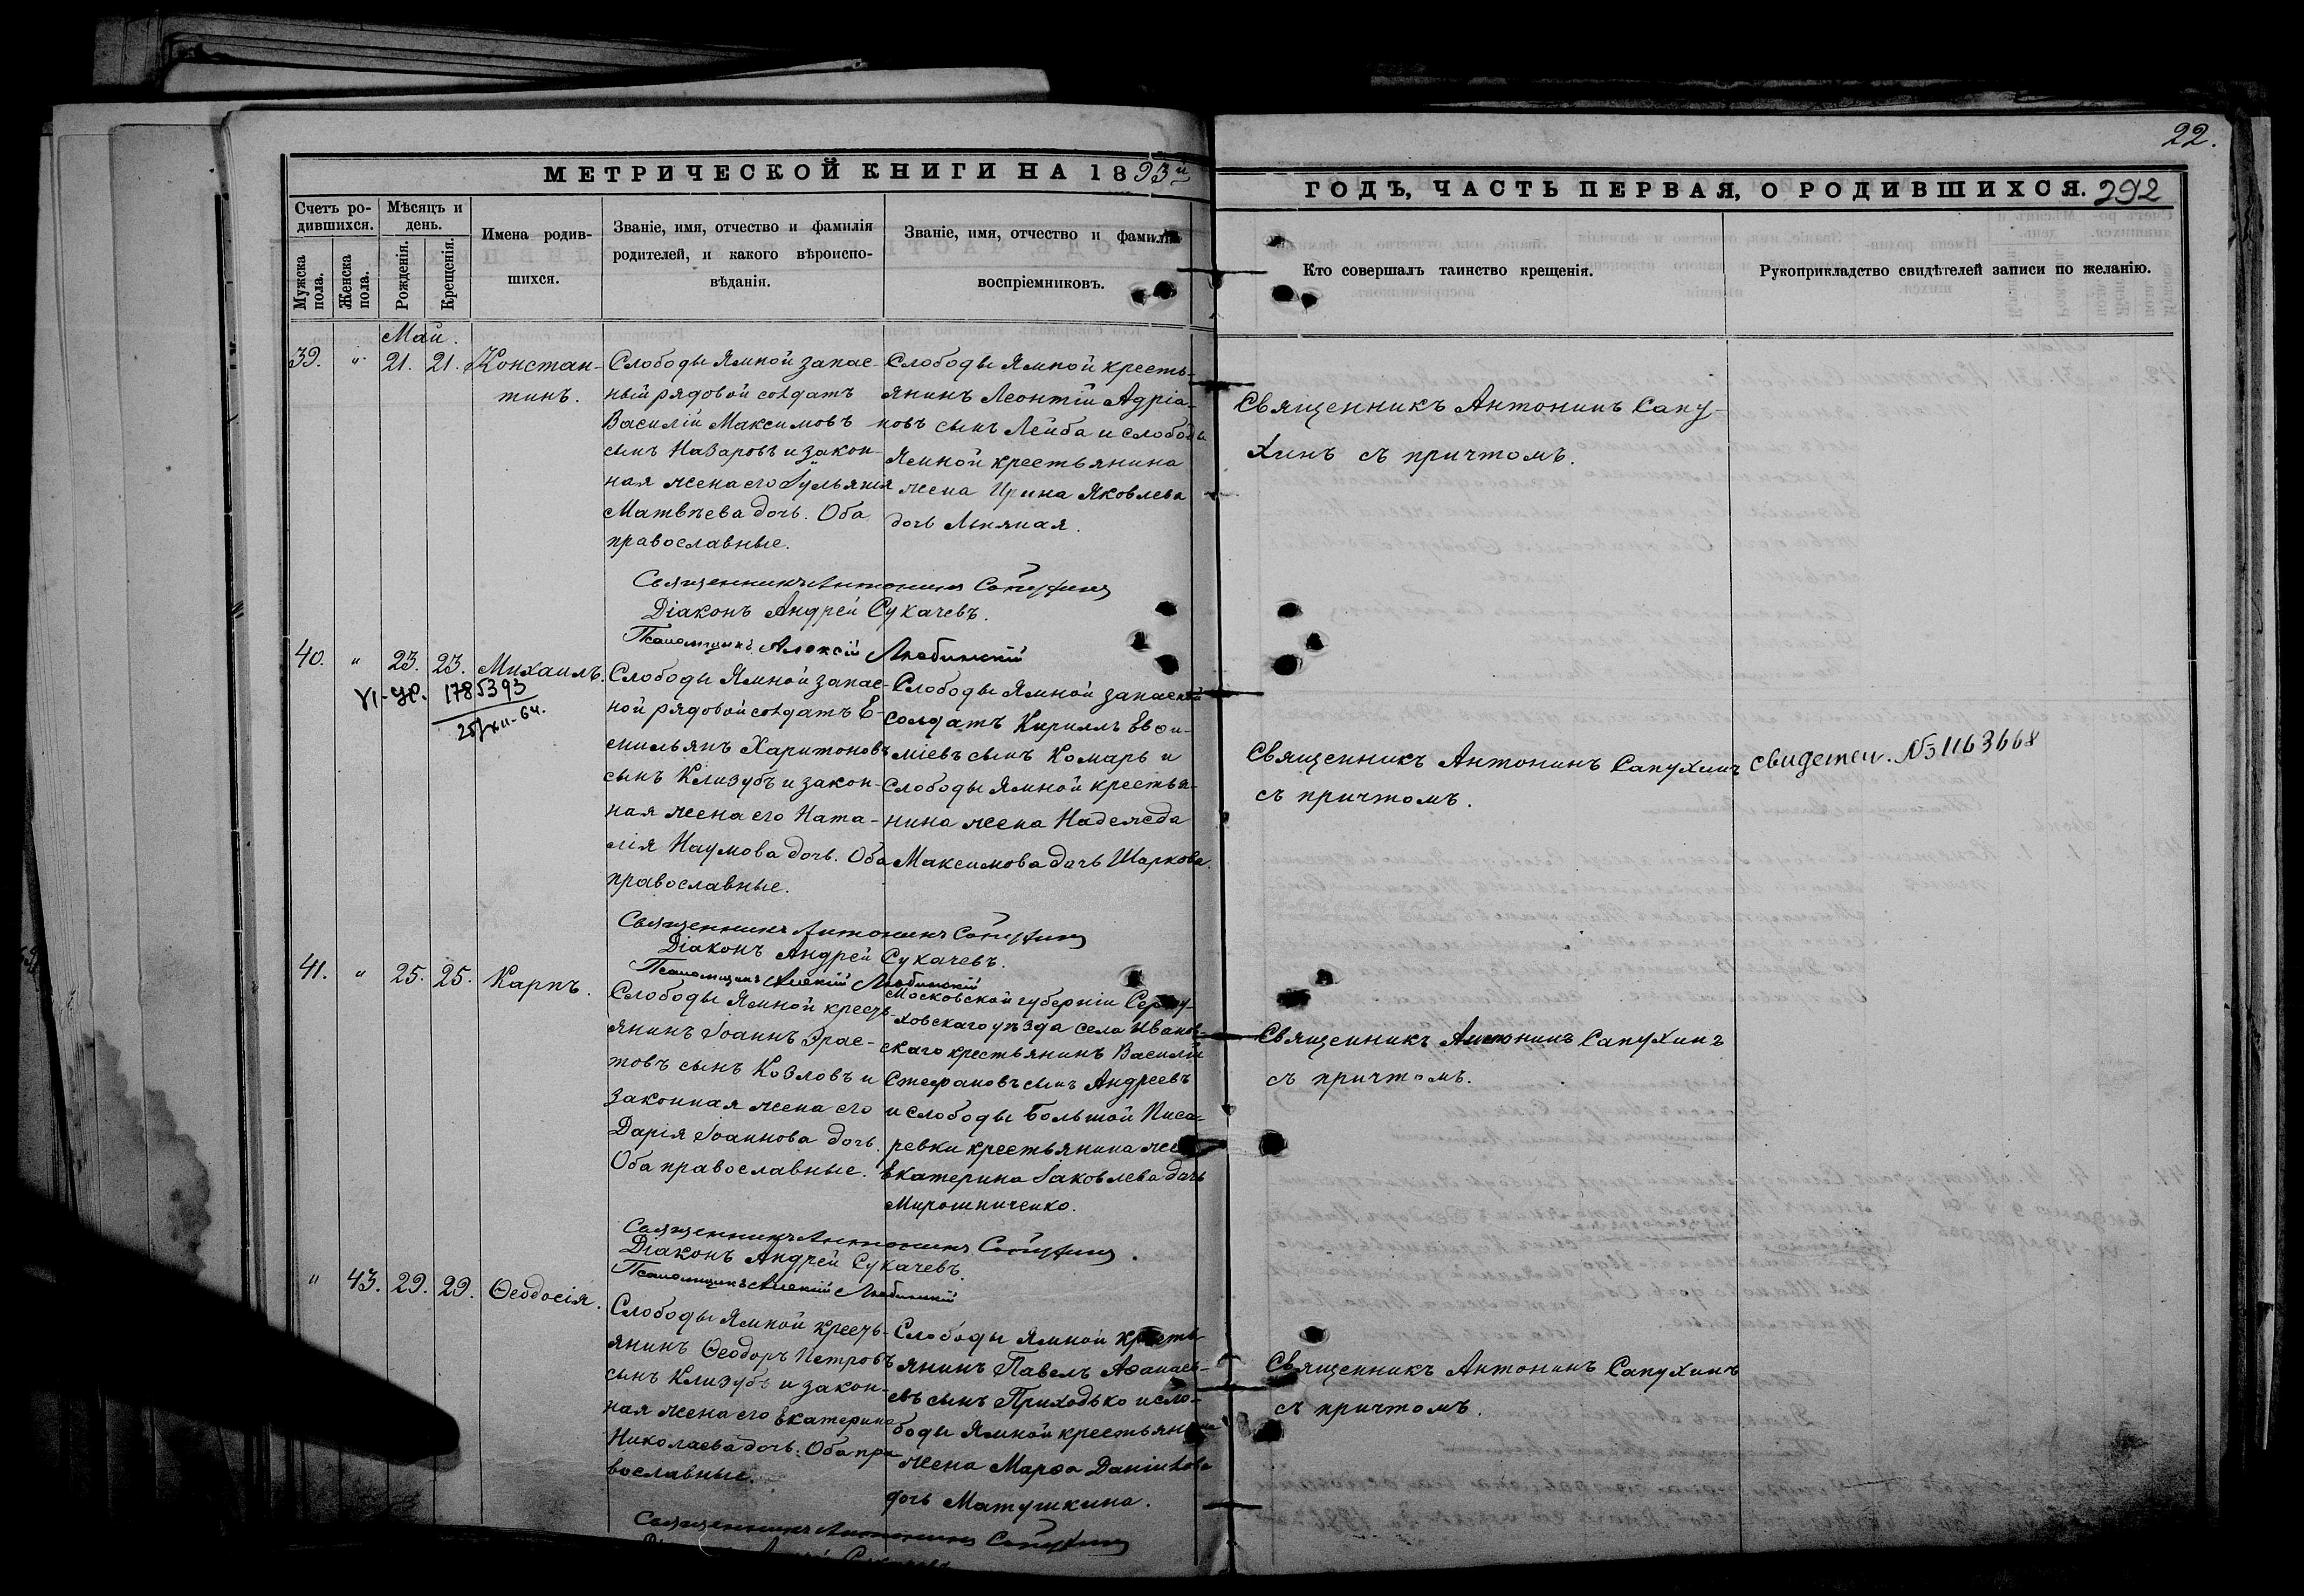 22.
МЕТРИЧЕСКОЙ КНИГИ НА 1893й
ГОДЪ, ЧАСТЬ ПЕРВАЯ, О РОДИВШИХСЯ. 292
Счетъ ро-
дившихся.
Мужска
пола.
Женска
пола.
Мѣсяцъ и
день.
Рожденія.
Крещенія.
Имена родив-
шихся.
Званіе, имя, отчество и фамилія
родителей, и какого вѣроиспо-
вѣданія.
Званіе, имя, отчество и фамилія
воспріемниковъ.
Кто совершалъ таинство крещенія.
Рукоприкладство свидѣтелей записи по желанію.
Май.
39. " 21. 21. Констан-
тинъ.
Слободы Ямной запас-
ный рядовой солдатъ
Василій Максимовъ
сынъ Назаровъ и закон-
ная жена его Іульянія
Матвѣева дочь. Оба
православные.
Слободы Ямной кресть-
янинъ Леонтій Адріа-
новъ сынъ Лейба и слободы
Ямной крестьянина
жена Ирина Яковлева
дочь
Священникъ Антонинъ Сапу-
хинъ съ причтомъ.
Священникъ Антонинъ Сапухинъ
Діаконъ Андрей Сукачевъ.
Псаломщикъ Алексій Любинскій
40. " 23. 23. Михаилъ.
VI-УР. 1785393
25/XII-64.
Слободы Ямной запас-
ной рядовой солдатъ Е-
мильянъ Харитоновъ
сынъ Клизубъ и закон-
ная жена его Ната-
лія Наумова дочь. Оба
православные.
Слободы Ямной запасной
солдатъ Кириллъ Евѳи-
міевъ сынъ Комарь и
слободы Ямной крестья-
нина жена Надежда
Максимова дочь Шаркова.
Священникъ Антонинъ Сапухинъ
съ причтомъ.
свидетел. № 1163668
Священникъ Антонинъ Сапухинъ
Діаконъ Андрей Сукачевъ.
Псаломщикъ Алексій Любинскій
41. " 25. 25. Карпъ.
Слободы Ямной кресть-
янинъ Іоаннъ Эрас-
товъ сынъ Козловъ и
законная жена его
Дарія Іоаннова дочь.
Оба православные.
Московской губерніи Серпу-
ховскаго уѣзда села Иванов-
скаго крестьянинъ Василій
Стефановъ сынъ Андреевъ
и слободы Большой Писа-
ревки крестьянина жена
Екатерина Іаковлева дочь
Мирошниченко.
Священникъ Антонинъ Сапухинъ
съ причтомъ.
Священникъ Антонинъ Сапухинъ.
Діаконъ Андрей Сукачевъ.
Псаломщикъ Алексій Любинскій
" 43. 29. 29. Ѳеодосія.
Слободы Ямной кресть-
янинъ Ѳеодоръ Петровъ
сынъ Клизубъ и закон-
ная жена его Екатерина
Николаева дочь. Оба пра-
вославные.
Слободы Ямной кресть-
янинъ Павелъ Аѳанась-
евъ сынъ Приходько и сло-
боды Ямной крестьянина
жена Марѳа Даніилова
дочь Матушкина.
Священникъ Антонинъ Сапухинъ
съ причтомъ.
Священникъ Антонинъ Сапухинъ